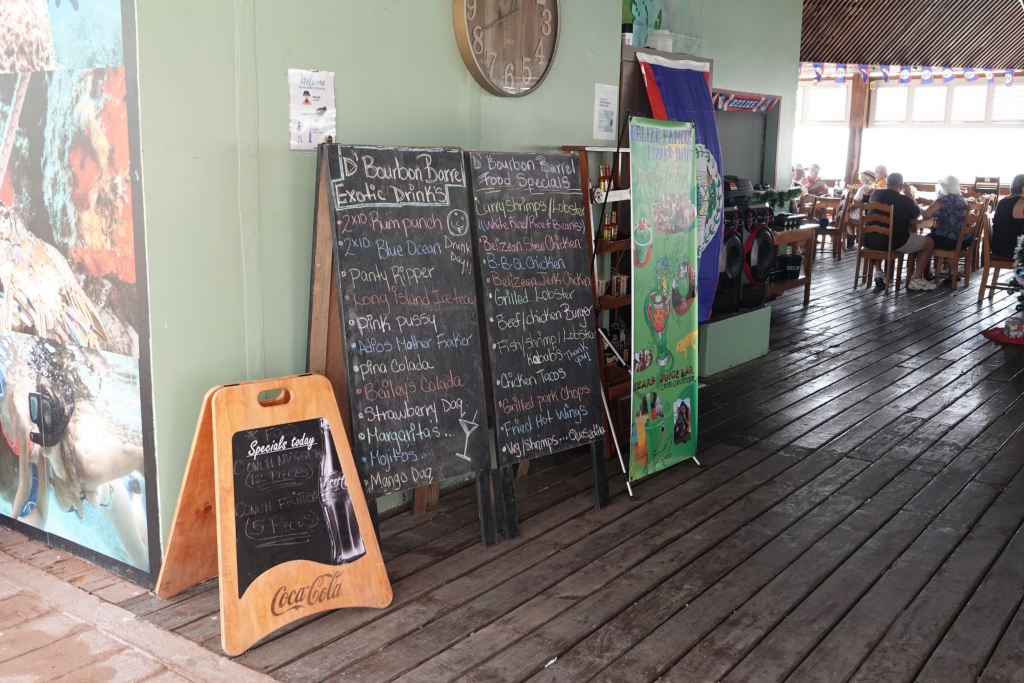 Welcome
8
7
6
5
4
3
BELIZE
D' Bourbon Barrel
Exotic Drink's
2x10 Rum punch
2x10 Blue Ocean
Drunk
Day!!
• Panty Ripper
• Long Island Ice tea
• pink pussy
• Adios Mother Fuxker
• pina Colada
• Bailay's Colada
• Strawberry Daq
• Margaritas...
• Mojitos...
• Mango Daq
D' Bourbon Barrel
Food Specials
Curry shrimps/Lobster
(White Rice/Rice & Beans)
• Belizean Stew Chicken
• B-B-Q Chicken
• Belizean Jerk Chicken
• Grilled Lobster
• Beef/chicken Burger
• Fish/shrimp/Lobster
kabobs
• Chicken Tacos
• Grilled pork Chops
• Fried Hot Wings
• Veg/shrimps...
BELIZE FAMOUS
LIZARD JUICE
LIZARD JUICE BAR
Specials today
CONCH
CONCH FRITTERS
(5 Pieces)
Coca-Cola